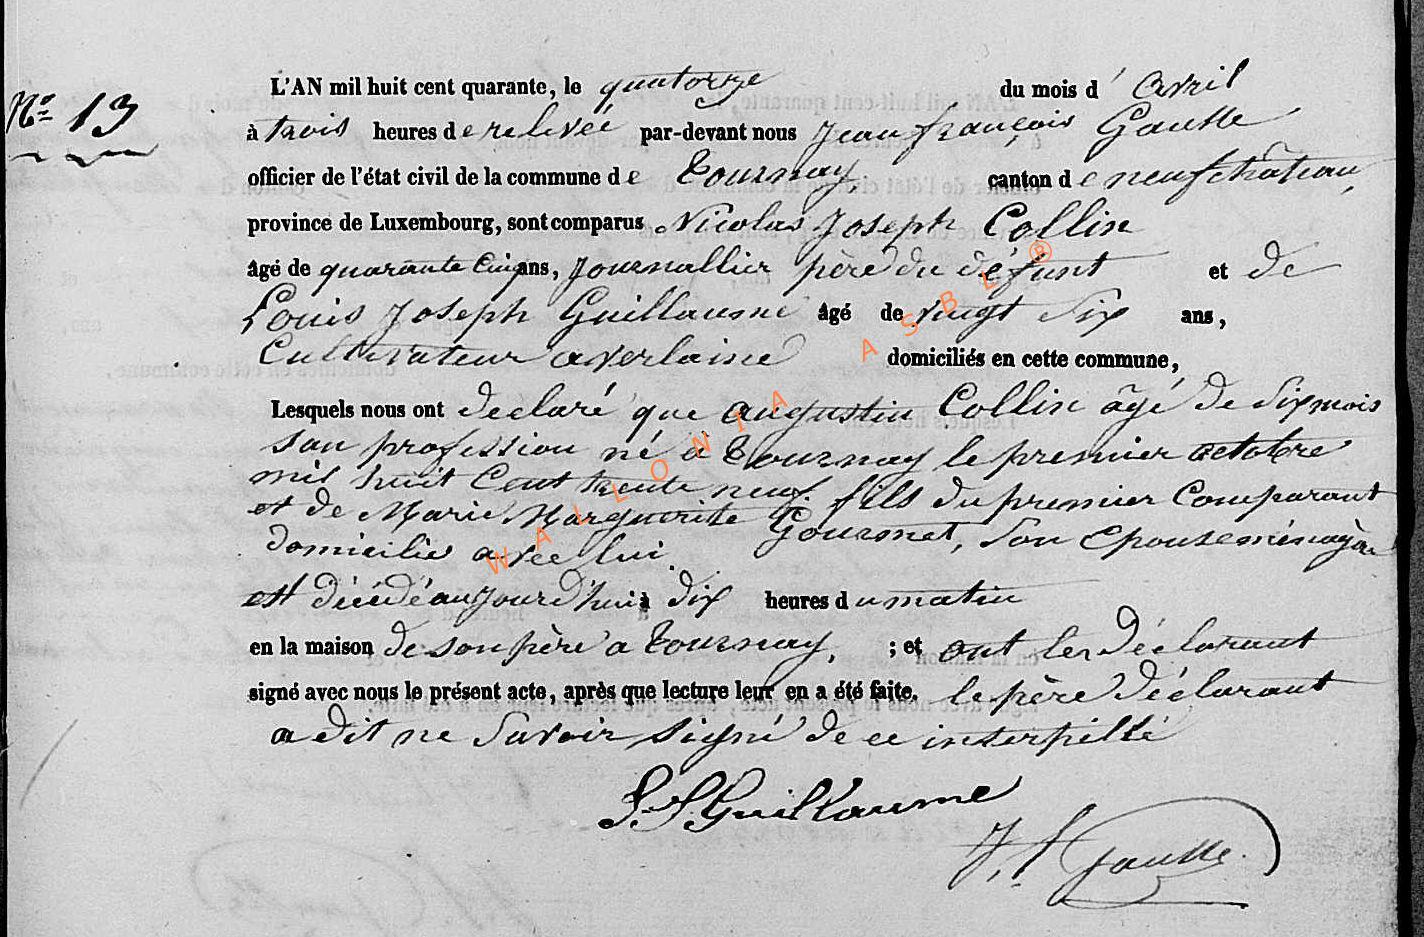 L'AN mil huit cent quarante, le quatorze du mois d'avril
No 13
à trois heures de relevée par-devant nous Jean françois Gausse
officier de l'état civil de la commune de Tournay canton de neufchâteau,
province de Luxembourg, sont comparus Nicolas Joseph Collin
âgé de quarante Cinq ans, Journallier père du défunt et de
Louis Joseph Guillaume âgé de vingt Six ans,
Cultivateur a verlaine domiciliés en cette commune,
Lesquels nous ont declaré que augustin Collin âgé de Six mois
san profession né à Tournay le premier octobre
mil huit Cent trente neuf. fils du premier Comparant
et de Marie Marguerite Gourmet, Son Epouse ménagère
domicilié avec lui.
est décédé aujourd'hui à dix heures du matin
en la maison de son père a Tournay, ; et ont les Déclarant
signé avec nous le présent acte, après que lecture leur en a été faite. le père Déclarant
a dit ne Savoir signé de ce interpellé
L. J. Guillaume
J. f. Gausse.
WALLONIA ASBL ®